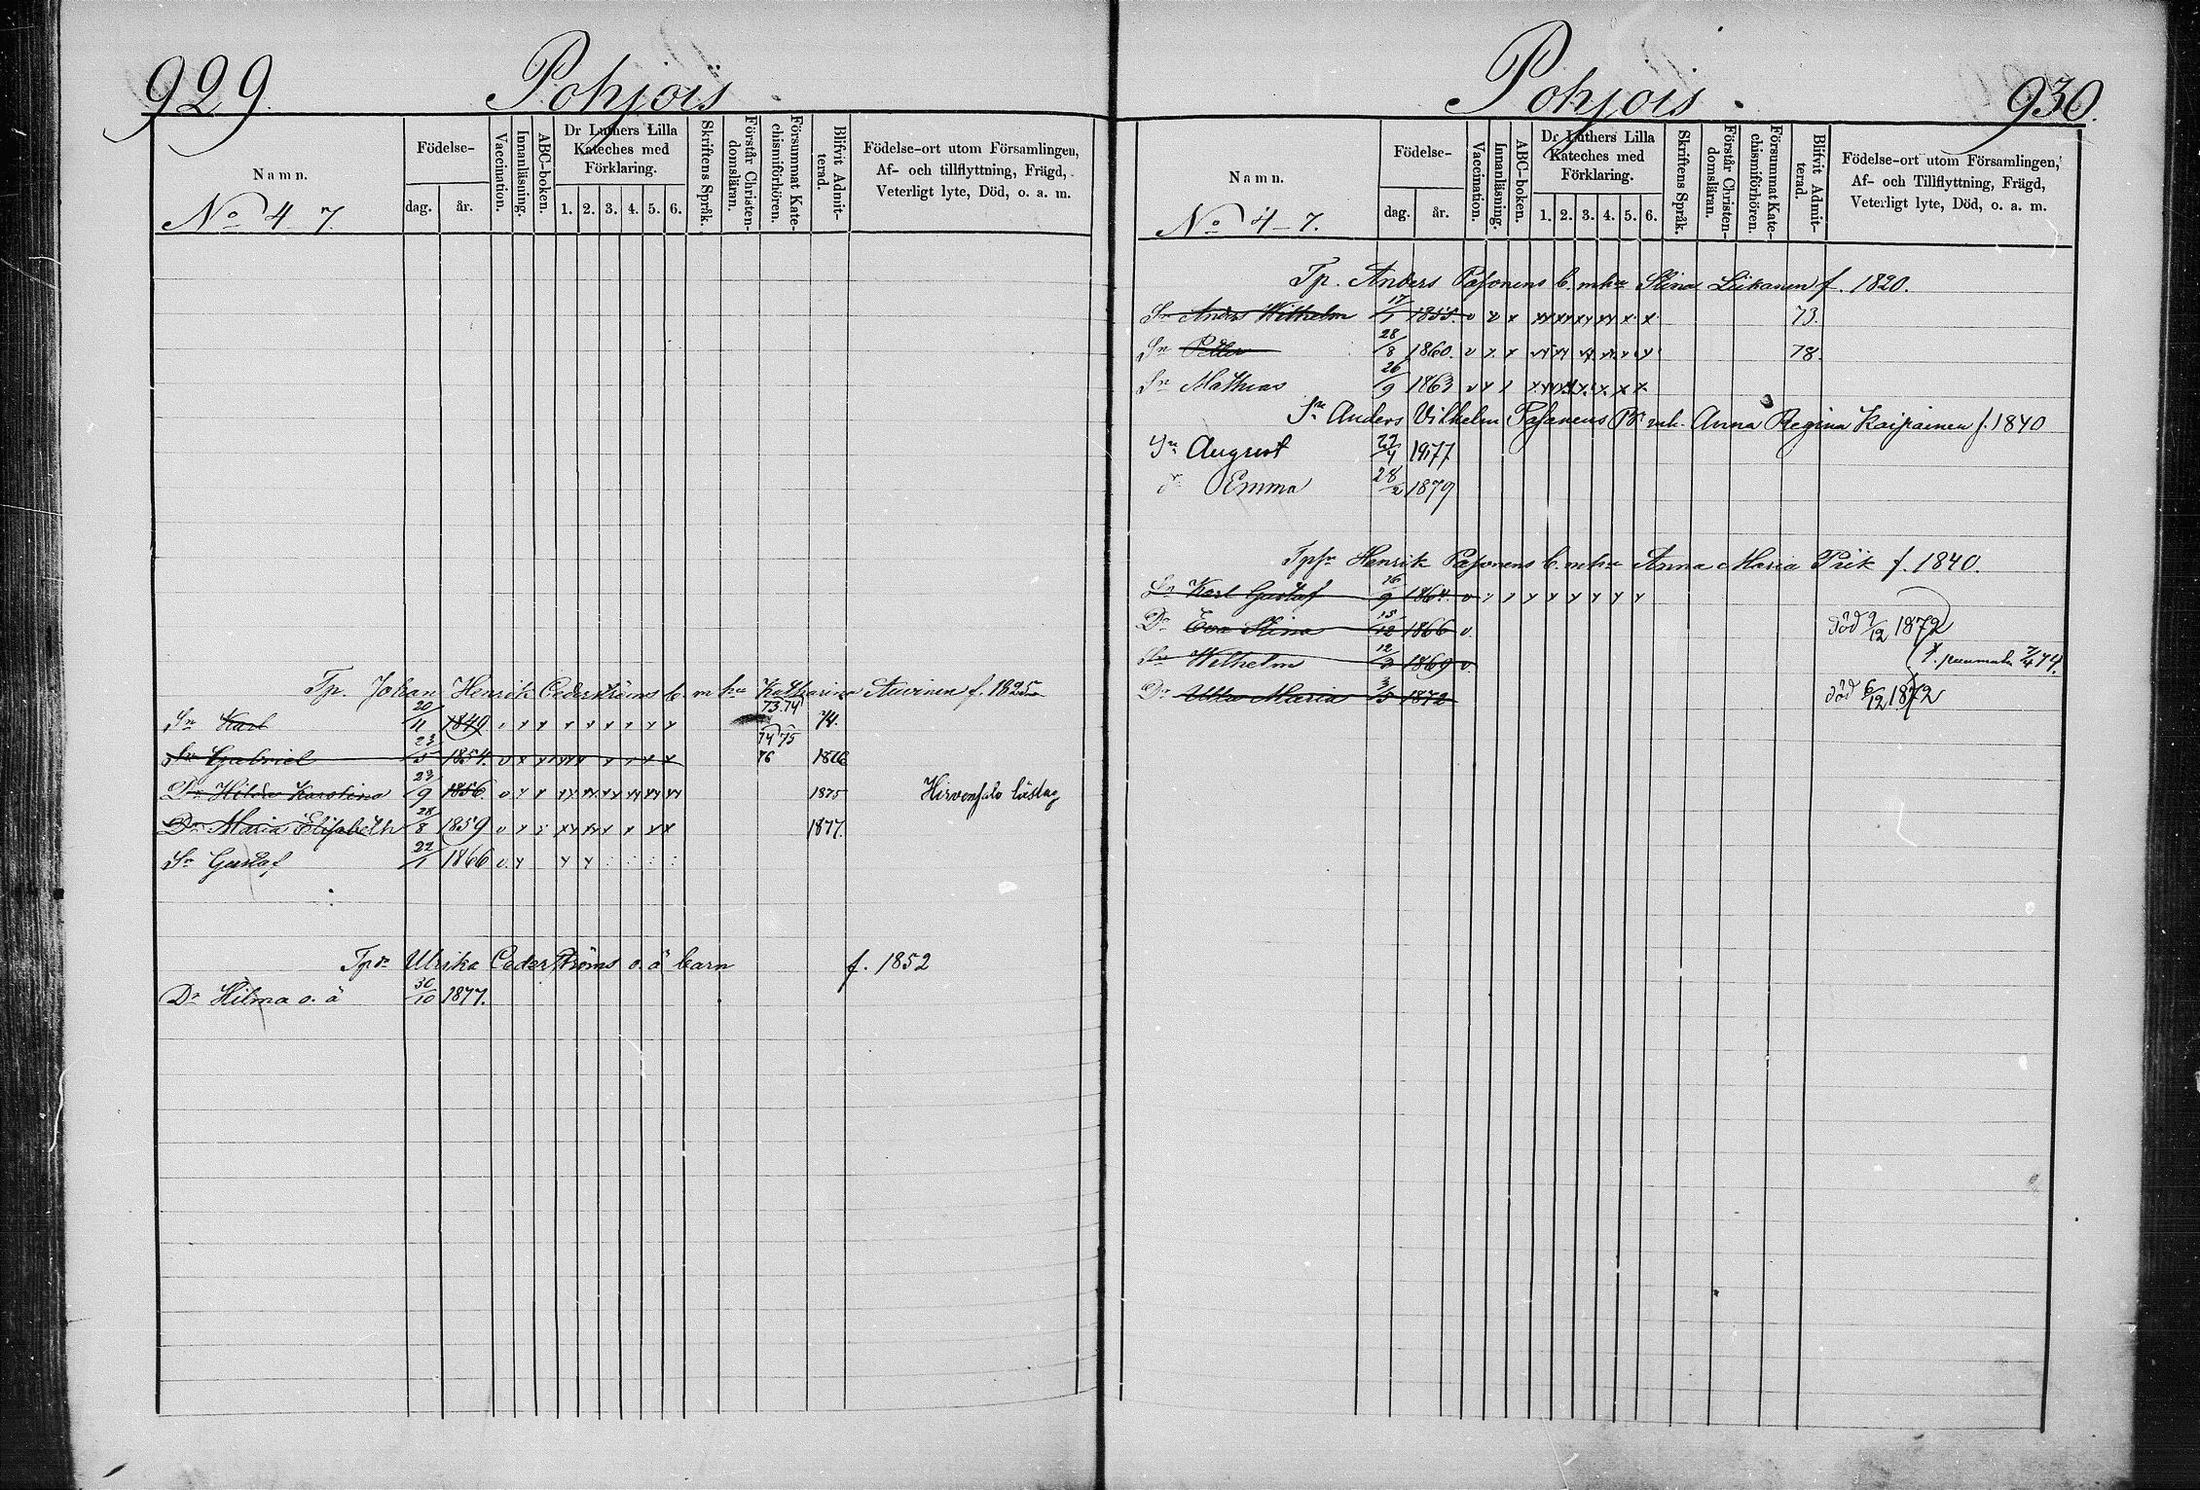 929. Pohjois
Namn.
No 4-7.
Födelse-
dag. år.
Vaccination.
Innanläsning.
ABC-boken.
Dr Luthers Lilla
Kateches med
Förklaring.
1. 2. 3. 4. 5. 6.
Skriftens Språk.
Förstår Christen-
domsläran.
Försummat Kate-
chismiförhören.
Blifvit Admit-
terad.
Födelse-ort utom Församlingen,
Af- och tillflyttning, Frägd,
Veterligt lyte, Död, o. a. m.
Tp. Johan Henrik Cederströms b. m hu Katharina Auvinen f. 1825
Sn Karl 20/11 1849 73.74 74.
Sn Gabriel 23/5 1854. v 74 75 76 1876
Dr Hilda Karolina 23/9 1856. v 1875 Hirvensalo
Dr Maria Elisabeth 28/8 1859 v 1877.
Sn Gustaf 22/1 1866 v.
Tpdr Ulrika Cederströms o. ä barn f. 1852
Dr Hilma o. ä 30/10 1877.
Pohjois. 930.
Namn.
No 4-7.
Födelse-
dag. år.
Vaccination.
Innanläsning.
ABC-boken.
Dr Luthers Lilla
Kateches med
Förklaring.
1. 2. 3. 4. 5. 6.
Skriftens Språk.
Förstår Christen-
domsläran.
Försummat Kate-
chismiförhören.
Blifvit Admit-
terad.
Födelse-ort utom Församlingen,
Af- och Tillflyttning, Frägd,
Veterligt lyte, Död, o. a. m.
Tp. Anders Pasonens b. mhu Stina Liikanen f. 1820.
Sn Anders Wilhelm 17/1 1855. v 73.
Sn Petter 28/8 1860. v 78.
Sn Mathias 26/9 1863 v
Sn Anders Vilhelm Pasanens B mh. Anna Regina Kaipainen f. 1840
Sn August 4 1877
d Emma 28/2 1879
Tpsn Henrik Pasonens b. mhu Anna Maria Piik f. 1840.
Sn Karl Gustaf 16/9 1864. v
Dr Eva Stina 15/12 1866 v. död 9/12 1872
Sn Wilhelm 12/3 1869 v 74.
Dr Ulla Maria 3/5 1872 död 6/12 1872